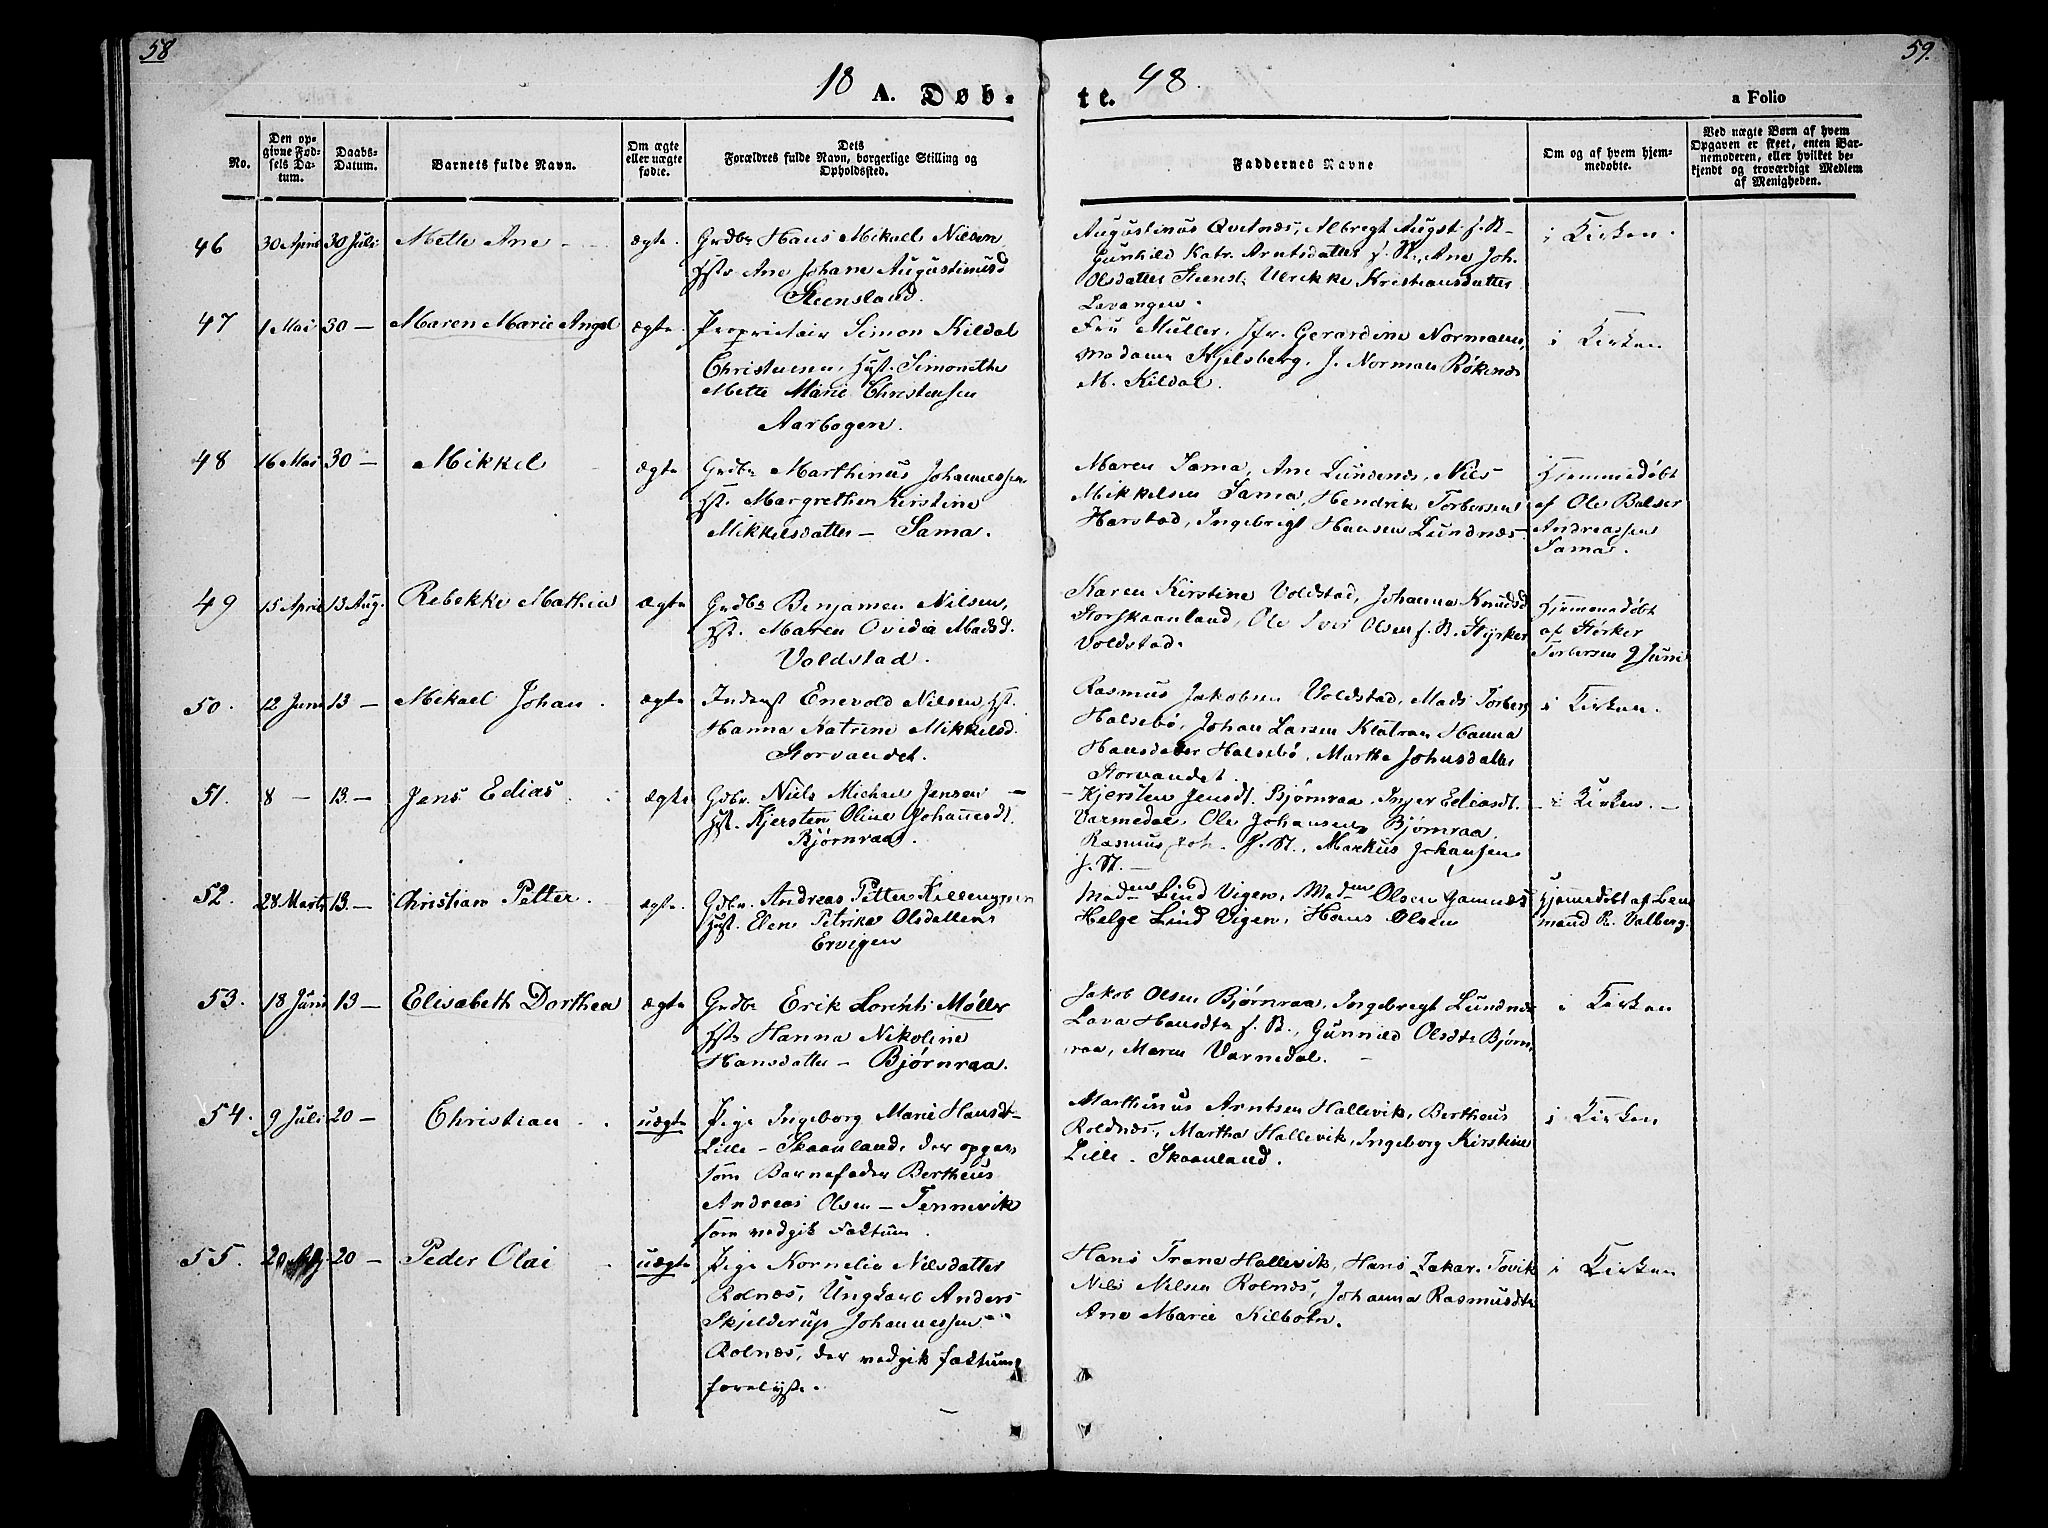 58
59.
18 A. Døb-
te. 48.
a Folio
No.
Den op-
givne Fød-
sels Da-
tum.
Daabs-
Datum.
Barnets fulde Navn.
Om ægte
eller uægte
fødte.
Dets
Forældres fulde Navn, borgerlige Stilling og
Opholdssted.
Faddernes Navne
Om og af hvem hjem-
medøbte.
Ved uægte Børn af hvem
Opgaven er skeet, enten Bar-
nemoderen, eller hvilket be-
kjendt og troværdigt Medlem
af Menigheden.
46 30 April 30 Juli Mette Ane ægte. Grdbr Hans Mikael Nilsen
Hstr Ane Johane Augustinusd
Steensland.
Augustinus Qvitnæs, Albregt Augst f. St-
Gunhild Katr. Arntsdatter f. St., Ane Joh.
Olsdatter Steensl. Ulrikke Kristiansdatter
Lavangen.
i Kirken.
47 1 Mai 30 — Maren Marie Angel ægte. Proprietair Simon Kildal
Christensen, Hst. Simonette
Mette Marie Christensen
Aarbogen.
Fru Müller, Jfr. Gerardine Normann,
Madame Kjelsberg, J. Norman Røkenæs
M. Kildal.
i Kirken
48 16 Mai 30 — Mikkel ægte Grdbr Marthinus Johannessen
Hst. Margrethe Kirstine
Mikkelsdatter — Sama.
Maren Sama, Ane Lundenæs, Nils
Mikkelsen Sama, Hendrik Torbersen
Harstad, Ingebrigt Hansen Lundnæs-
Hjemmedøbt
af Ole Balser
Andreassen
Sama.
49 15 April 13 Aug. Rebekke Mathea ægte Grdbr Benjamen Nilsen,
Hst. Maren Ovidia Madsd.
Voldstad.
Karen Kirstine Voldstad, Johanna Knudsd
Storskaanland, Ole Iver Olsen f. St. Styrker
Voldstad.
Hjemmedøbt
af Størker
Torbersen 9 Juni
50. 12 Juni 13 — Mikael Johan. ægte Inderst Enevold Nilsen, Hst.
Hanna Katrine Mikkelsd.
Storvandet.
Rasmus Jakobsen Voldstad, Mads Torbers
Halsebø, Johan Larsen Klatran Hanna
Hansdatter Halsebø, Martha Johnsdatter
Storvandet.
i Kirken.
51. 8 — 13. — Jens Edias. ægte Gdbr. Niels Michael Jensen —
Hst. Kjersten Oline Johannesdt.
Bjørnraa.
- Kjersten Jensdt. Bjørnraa, Inger Ediasdt.
Varmedal, Ole Johansen Bjørnraa.
Rasmus Joh. f. St., Markus Johansen
f. St. —
- i Kirken. —
52. 28 Marts 13. — Christian Petter. ægte. Gdbr. Andreas Petter
Hust. Elen Petrike Olsdatter
Ervigen
Madden Lind Vigen, Madden Olsen Gamnæs
Helge Lind Vigen, Hans Olsen
Hjemmedøbt af Lens
mand R. Valberg.
53. 18 Juni 13 — Elisabeth Dorthea ægte Grdbr Erik Lorents Møller
Hstr Hanna Nikoline
Hansdatter — Bjørnraa.
Jakob Olsen Bjørnraa, Ingebregt Lundnæs
Lava Hansdtr f. St., Gunnild Olsdtr Bjørn-
raa, Maren Varmedal. —
i Kirken
54. 9 Juli 20 — Christian. uægte Pige Ingeborg Marie Hansdt-
Lille-Skaanland, der opgav
som Barnefader Bertheus
Andreas Olsen — Tennevik
som vedgik Faktum.
Marthinus Arntsen Hallevik, Bertheus
Rolnæs, Martha Hallevik, Ingeborg Kirstine
Lille-Skaanland.
i Kirken
55. 20 20 — Peder Olai uægte Pige Kornelia Nilsdatter
Rolnæs, Ungkarl Anders
Skjelderup Johannessen
Rolnæs, der vedgik faktum
forelyst.
Hans Trana Hallevik, Hans Zakar. Tovik
Nils Nilsen Rolnæs, Johanna Rasmusdtr
Ane Marie Kilbotn.
i Kirken